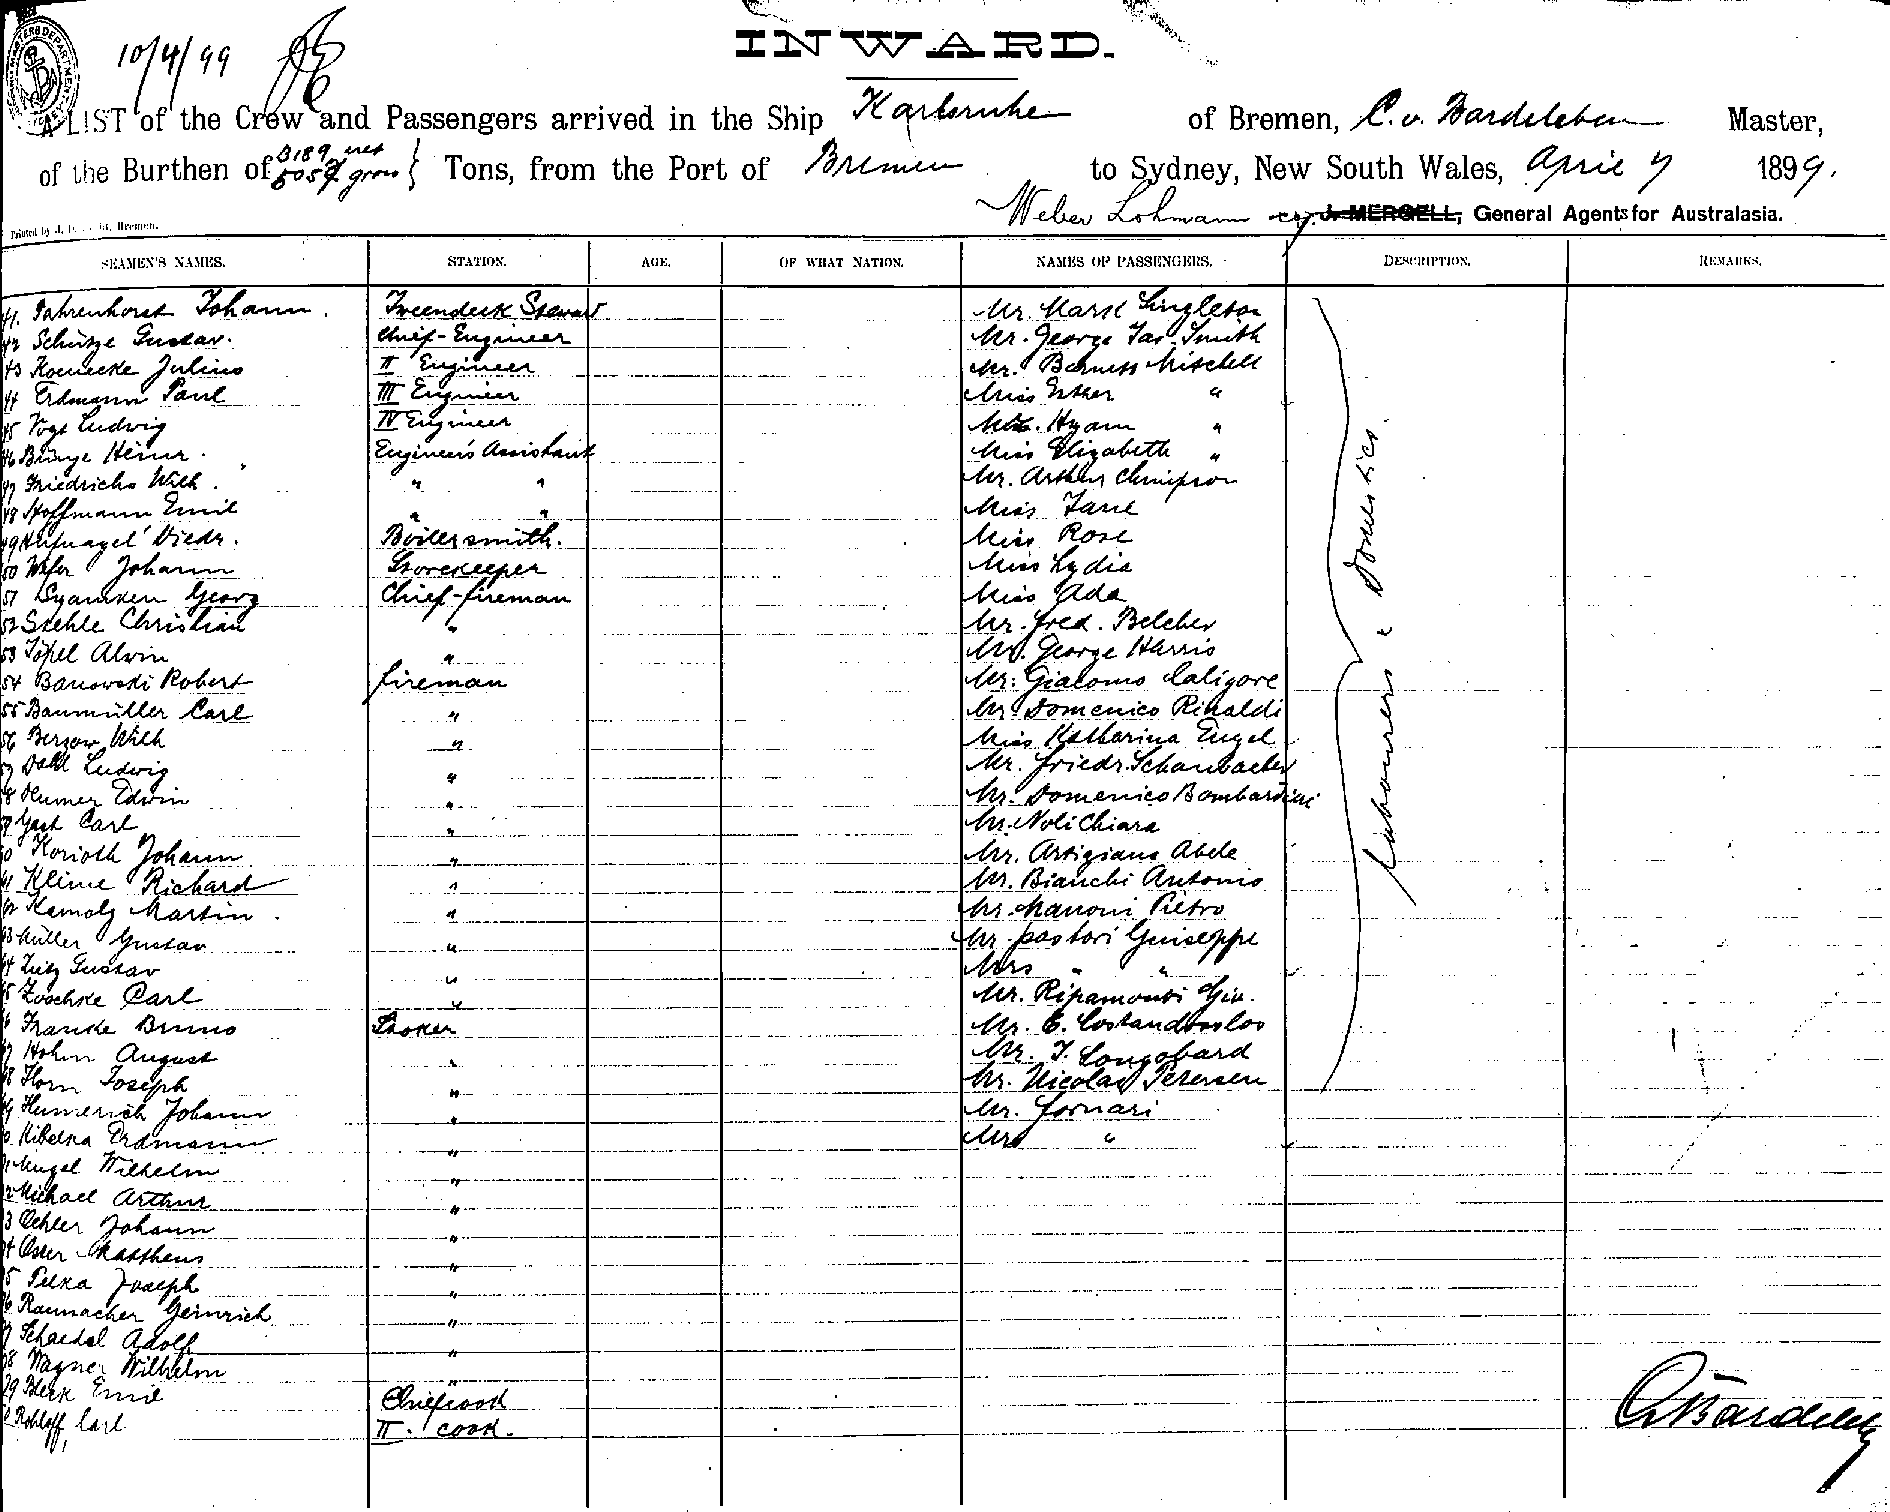 10/4/99
INWARD.
A LIST of the Crew and Passengers arrived in the Ship Karlsruhe of Bremen, C. v. Bardeleben Master,
of the Burthen of 3189 net 5057 gross } Tons, from the Port of Bremen to Sydney, New South Wales, April 7 1899.
Weber Lohmann J. MERGELL, General Agents for Australasia.
Printed by J. Bremen.
SEAMEN'S NAMES. STATION. AGE. OF WHAT NATION. NAMES OF PASSENGERS. DESCRIPTION. REMARKS.
41. Fahrenhorst Johann. Tweendeck Steward Mr. Mark Singleton
42 Schütze Gustav. Chief-Engineer Mr. George Jas. Smith
43 Koenecke Julius II Engineer Mr. Barness Mitchell
44 Erdmann Paul III Engineer Miss Esther "
45 Vogt Ludwig IV Engineer Hyam "
46 Heinr. Engineer's Assistant Miss Elizabeth "
47 Friedrichs Wilh. " " Mr. Arthur
48 Hoffmann Emil " " Miss Jane
49 Hufnagel Diedr. Boilersmith. Miss Rose
50 Johann Storekeeper Miss Lydia
51 Georg Chief-fireman Miss Ada
52 Stehle Christian " Mr. Fred. Belcher
53 Töpel Alwin " Mr. George Harris
54 Banowski Robert fireman Mr. Giacomo Caligore
55 Baumüller Carl " Mr. Domenico Rinaldi
56 Bersow Wilh " Miss Katharina Engel
57 Dahl Ludwig " Mr. Friedr. Schaubacher
58 Edwin " Mr. Domenico Bombardini
59 Gast Carl " Mr. Noli Chiara
60 Korioth Johann " Mr. Artigiano Abele
61 Klime Richard " Mr. Bianchi Antonio
62 Kamolz Martin. " Mr. Manoni Pietro
63 Müller Gustav " Mr. pastori Guiseppe
64 Gustav " Mrs " "
65 Zoschke Carl " Mr. Ripamonti Giu.
66 Franke Bruno Stoker Mr. C. Costandoulos
67 Hohm August " Mr. T. Longobard
68 Horn Joseph " Mr. Nicolas Petersen
69 Humerich Johann " Mr. Fornari
70 Kibelka Erdmann " Mrs "
71 Wilhelm "
72 Michael Arthur "
73 Oehler Johann "
74 Oster Mattheus "
75 Pelka Joseph "
76 Raumacher Heinrich "
77 Schaedel Adolf "
78 Wagner Wilhelm "
79 Berk Emil Chief cook
80 Rohloff, Carl II. cook.
Labourers & Domestics.
C. v. Bardeleben